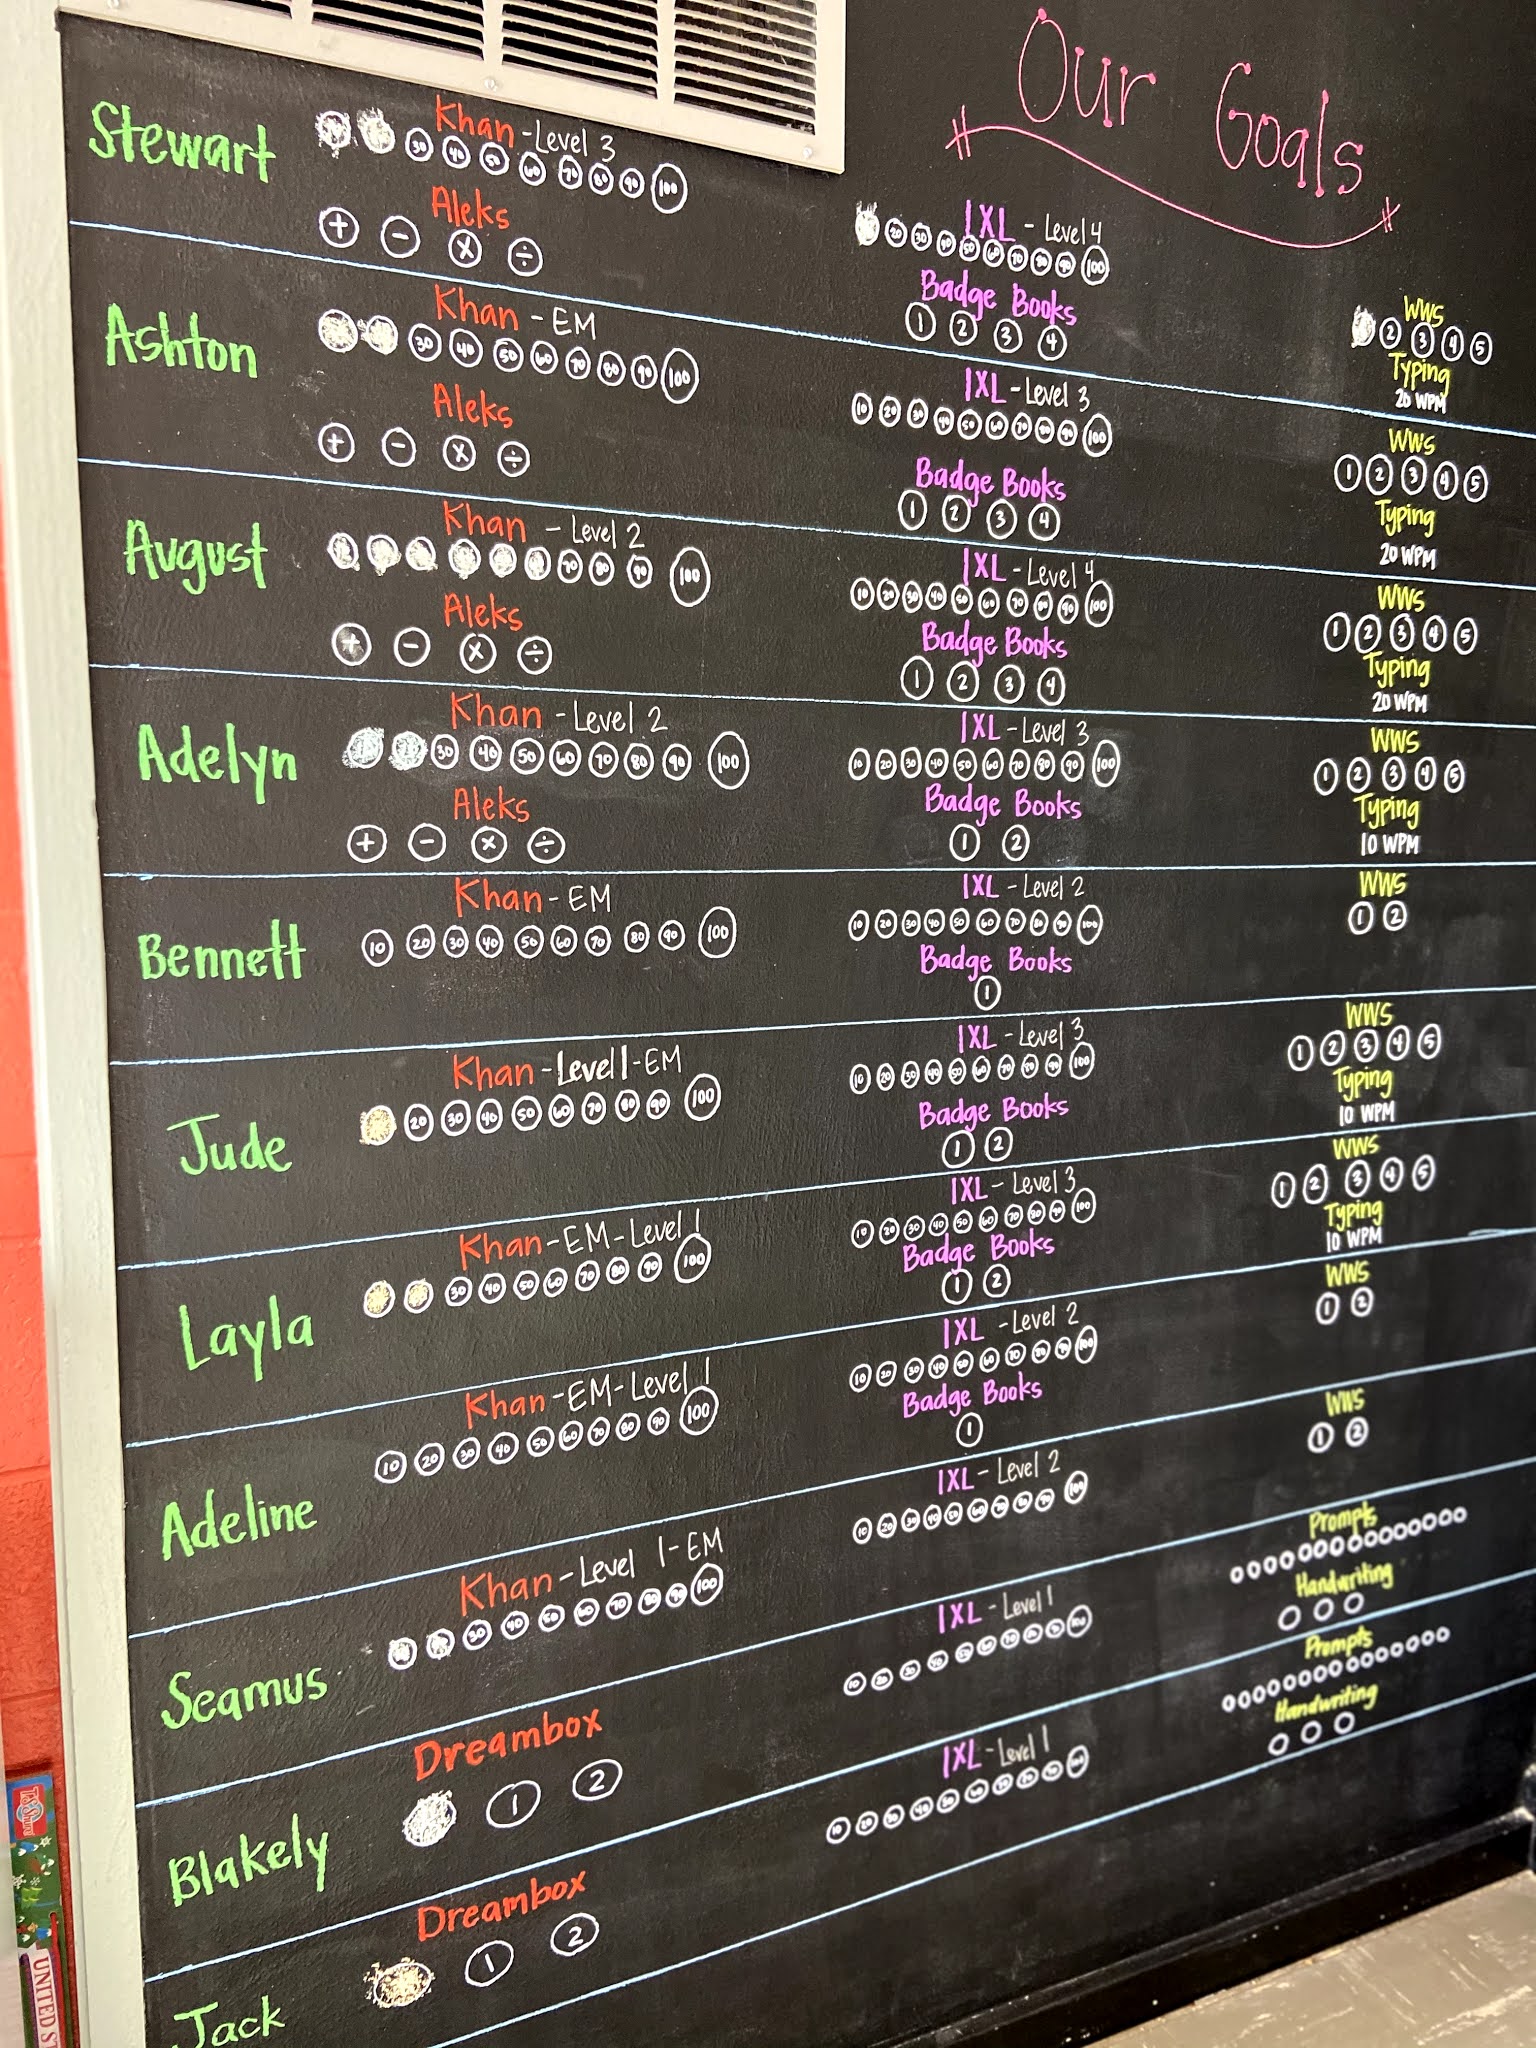 Our Goals
Stewart
Khan - Level 3
30 40 50 60 70 80 90 100
Aleks
+ − × ÷
IXL - Level 4
20 30 40 50 60 70 80 90 100
Badge Books
1 2 3 4
WWS
2 3 4 5
Typing
20 WPM
Ashton
Khan - EM
30 40 50 60 70 80 90 100
Aleks
+ − × ÷
IXL - Level 3
10 20 30 40 50 60 70 80 90 100
Badge Books
1 2 3 4
WWS
1 2 3 4 5
Typing
20 WPM
August
Khan - Level 2
70 80 90 100
Aleks
+ − × ÷
IXL - Level 4
10 20 30 40 50 60 70 80 90 100
Badge Books
1 2 3 4
WWS
1 2 3 4 5
Typing
20 WPM
Adelyn
Khan - Level 2
30 40 50 60 70 80 90 100
Aleks
+ − × ÷
IXL - Level 3
10 20 30 40 50 60 70 80 90 100
Badge Books
1 2
WWS
1 2 3 4 5
Typing
10 WPM
Bennett
Khan - EM
10 20 30 40 50 60 70 80 90 100
IXL - Level 2
10 20 30 40 50 60 70 80 90 100
Badge Books
1
WWS
1 2
Jude
Khan - Level 1 - EM
20 30 40 50 60 70 80 90 100
IXL - Level 3
10 20 30 40 50 60 70 80 90 100
Badge Books
1 2
WWS
1 2 3 4 5
Typing
10 WPM
Layla
Khan - EM - Level 1
30 40 50 60 70 80 90 100
IXL - Level 3
10 20 30 40 50 60 70 80 90 100
Badge Books
1 2
WWS
1 2 3 4 5
Typing
10 WPM
Adeline
Khan - EM - Level 1
10 20 30 40 50 60 70 80 90 100
IXL - Level 2
10 20 30 40 50 60 70 80 90 100
Badge Books
1
WWS
1 2
Seamus
Khan - Level 1 - EM
30 40 50 60 70 80 90 100
IXL - Level 2
10 20 30 40 50 60 70 80 90 100
WWS
1 2
Blakely
Dreambox
1 2
IXL - Level 1
10 20 30 40 50 60 70 80 90 100
Prompts
Handwriting
Jack
Dreambox
1 2
IXL - Level 1
10 20 30 40 50 60 70 80 90 100
Prompts
Handwriting
UNITED S